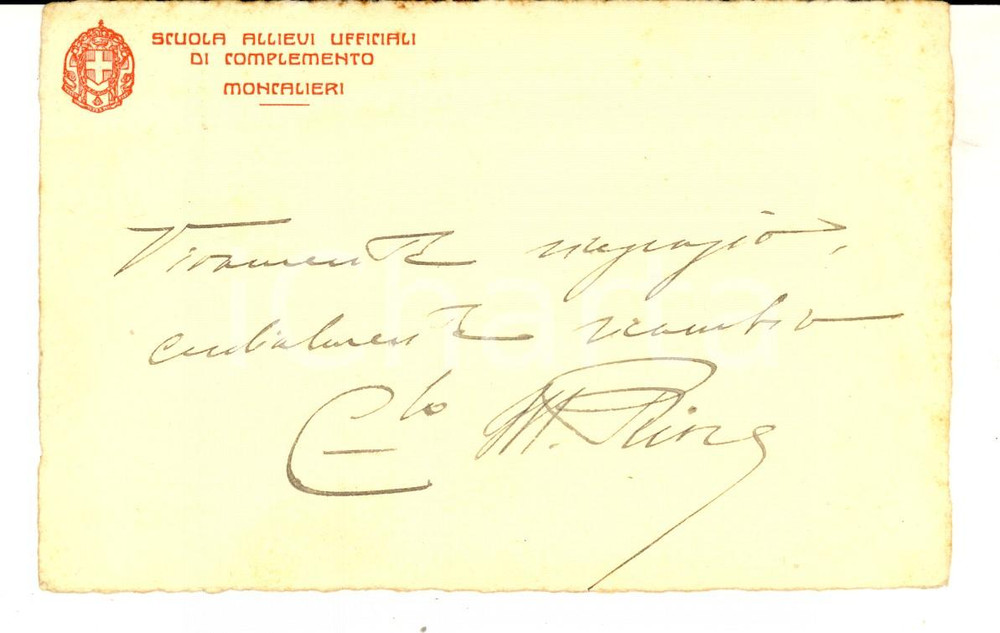 SCUOLA ALLIEVI UFFICIALI
DI COMPLEMENTO
MONCALIERI
Vivamente ringrazio,
cordialmente ricambio
C.lo M.